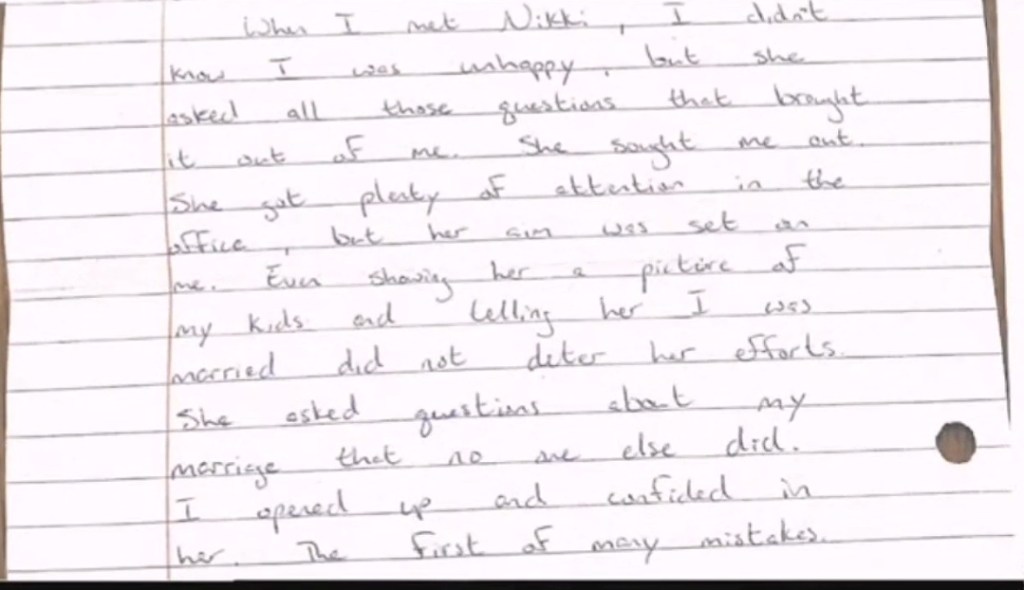 When I met Nikki, I didn't
know I was unhappy, but she
asked all those questions that brought
it out of me. She sought me out.
She got plenty of attention in the
office, but her aim was set on
me. Even showing her a picture of
my kids and telling her I was
married did not deter her efforts.
She asked questions about my
marriage that no one else did.
I opened up and confided in
her. The first of many mistakes.